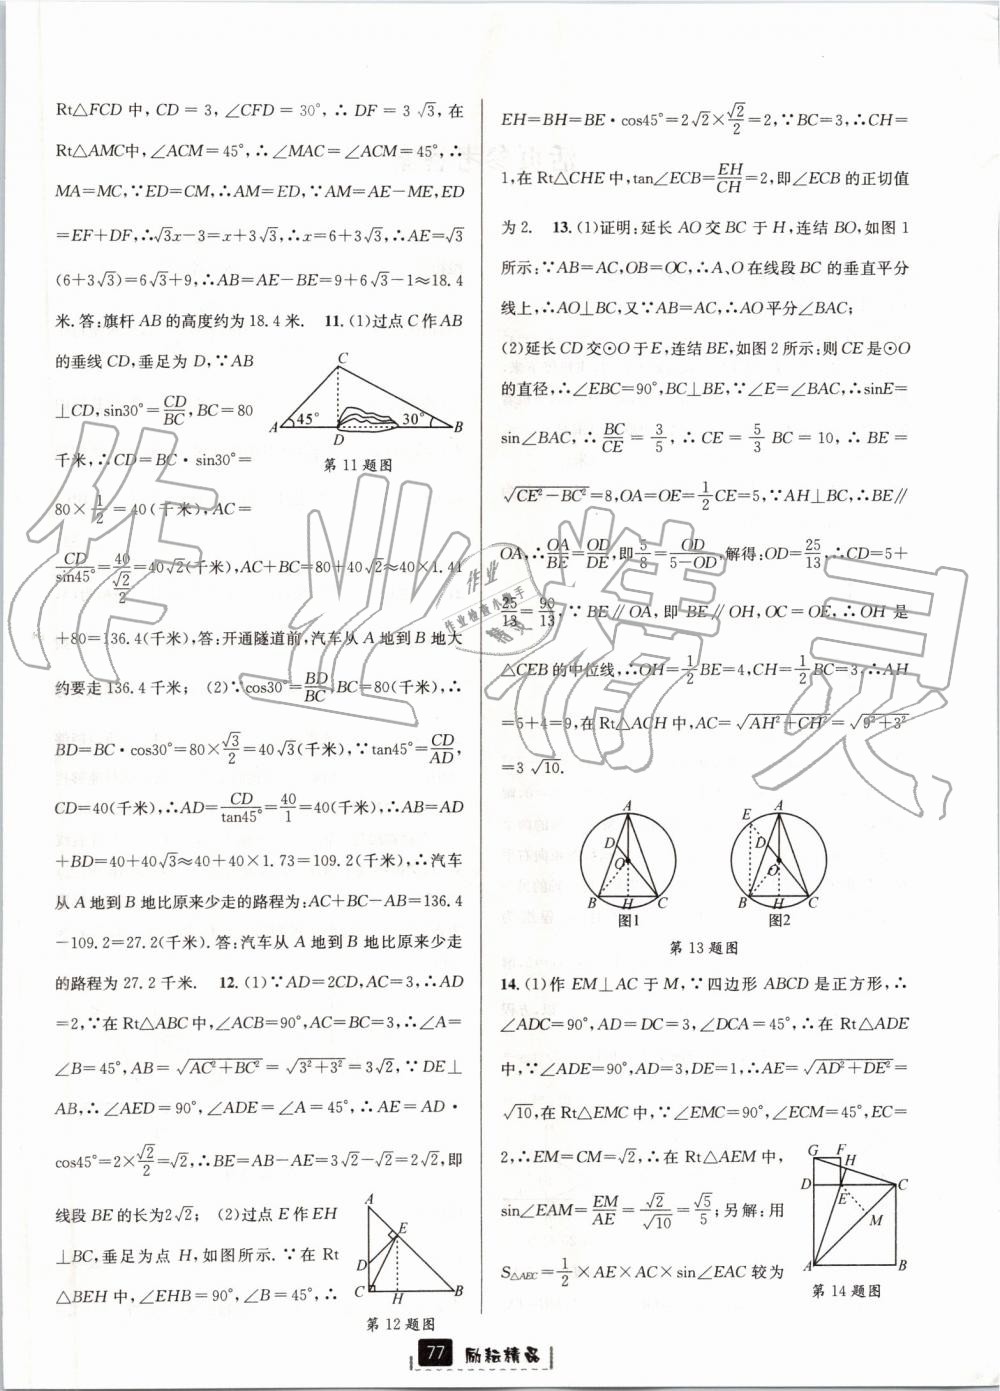 Rt△FCD 中, CD = 3, ∠CFD = 30°, ∴ DF = 3√3, 在
Rt△AMC中, ∠ACM=45°, ∴∠MAC=∠ACM=45°, ∴
MA=MC, ∵ED=CM, ∴AM=ED, ∵AM=AE-ME, ED
=EF+DF, ∴√3x-3=x+3√3, ∴x=6+3√3, ∴AE=√3
(6+3√3)=6√3+9, ∴AB=AE-BE=9+6√3-1≈18.4
米.答:旗杆AB的高度约为18.4米. 11.(1)过点C作AB
的垂线CD,垂足为 D,∵AB
⊥CD, sin30°=CD/BC, BC=80
千米,∴CD=BC·sin30°=
80×1/2=40(千米), AC=
CD/sin45°=40/(√2/2)=40√2(千米), AC+BC=80+40√2≈40×1.41
+80=136.4(千米),答:开通隧道前,汽车从A地到B地大
约要走136.4千米; (2)∵cos30°=BD/BC, BC=80(千米),∴
BD=BC·cos30°=80×√3/2=40√3(千米),∵tan45°=CD/AD,
CD=40(千米),∴AD=CD/tan45°=40/1=40(千米),∴AB=AD
+BD=40+40√3≈40+40×1.73=109.2(千米),∴汽车
从A地到B地比原来少走的路程为:AC+BC-AB=136.4
-109.2=27.2(千米).答:汽车从A地到B地比原来少走
的路程为27.2千米. 12.(1)∵AD=2CD,AC=3,∴AD
=2,∵在Rt△ABC中,∠ACB=90°,AC=BC=3,∴∠A=
∠B=45°, AB=√(AC²+BC²)=√(3²+3²)=3√2, ∵DE⊥
AB, ∴∠AED=90°, ∠ADE=∠A=45°, ∴AE=AD·
cos45°=2×√2/2=√2, ∴BE=AB-AE=3√2-√2=2√2, 即
线段BE的长为2√2; (2)过点E作EH
⊥BC,垂足为点 H,如图所示.∵在 Rt
△BEH中,∠EHB=90°,∠B=45°,∴
C
A 45° D 30° B
第11题图
A
E
D
C H B
第12题图
EH=BH=BE·cos45°=2√2×√2/2=2, ∵BC=3, ∴CH=
1,在Rt△CHE中,tan∠ECB=EH/CH=2,即∠ECB的正切值
为2. 13.(1)证明:延长AO交BC于H,连结BO,如图1
所示:∵AB=AC,OB=OC,∴A、O在线段BC的垂直平分
线上,∴AO⊥BC,又∵AB=AC,∴AO平分∠BAC;
(2)延长CD交⊙O于E,连结BE,如图2所示:则CE是⊙O
的直径,∴∠EBC=90°,BC⊥BE,∵∠E=∠BAC,∴sinE=
sin∠BAC, ∴BC/CE=3/5, ∴CE=5/3 BC=10, ∴BE=
√(CE²-BC²)=8, OA=OE=1/2CE=5, ∵AH⊥BC, ∴BE∥
OA, ∴OA/BE=OD/DE, 即5/8=OD/(5-OD), 解得:OD=25/13, ∴CD=5+
25/13=90/13, ∵BE∥OA, 即BE∥OH, OC=OE, ∴OH是
△CEB的中位线,∴OH=1/2BE=4, CH=1/2BC=3, ∴AH
=5+4=9,在Rt△ACH中,AC=√(AH²+CH²)=√(9²+3²)
=3√10.
A
D O
B H C
图1
E A
D O
B H C
图2
第13题图
14.(1)作EM⊥AC于M,∵四边形ABCD是正方形,∴
∠ADC=90°,AD=DC=3,∠DCA=45°,∴在Rt△ADE
中,∵∠ADE=90°,AD=3,DE=1,∴AE=√(AD²+DE²)=
√10,在Rt△EMC中,∵∠EMC=90°,∠ECM=45°,EC=
2,∴EM=CM=√2,∴在Rt△AEM中,
sin∠EAM=EM/AE=√2/√10=√5/5;另解:用
S△AEC=1/2×AE×AC×sin∠EAC较为
G F H
D E C
M
A B
第14题图
作业精灵
作业
作业检查小助手
精灵
77 励耘精品